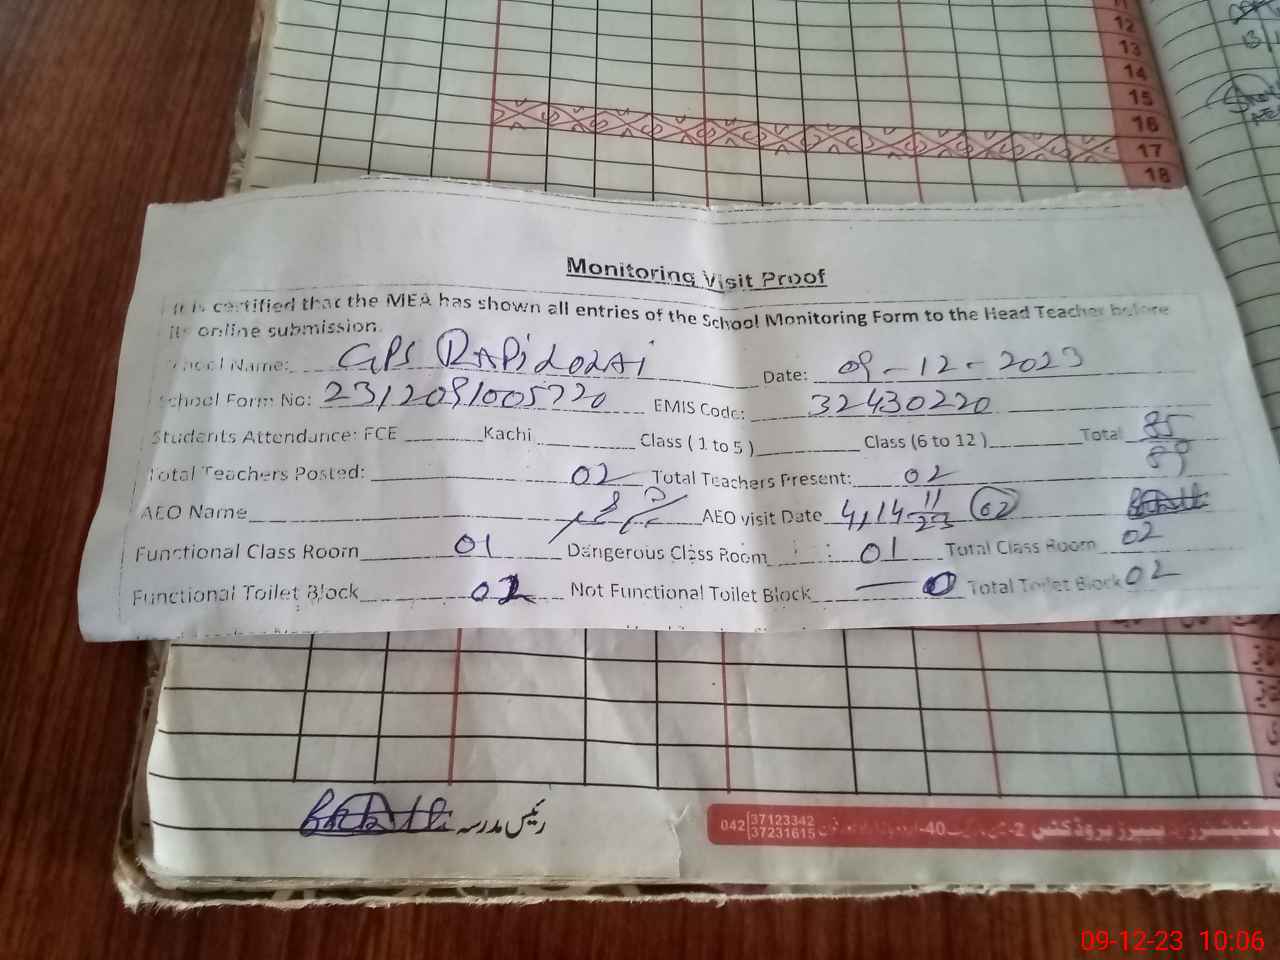 12
13
14
15
16
17
18
Monitoring Visit Proof
It is certified that the MEA has shown all entries of the School Monitoring Form to the Head Teacher before
its online submission.
School Name: GPS
Date: 09-12-2023
School Form No: 231209/005720
EMIS Code: 32430220
Students Attendance: FCE Kachi Class (1 to 5) Class (6 to 12) Total 85
89
Total Teachers Posted: 02 Total Teachers Present: 02
AEO Name AEO visit Date 4,14 11/23 02
Functional Class Room 01 Dangerous Class Room 01 Total Class Room 02
Functional Toilet Block 02 Not Functional Toilet Block 0 Total Toilet Block 02
رئیس مدرسہ
042 37123342
37231615
09-12-23 10:06